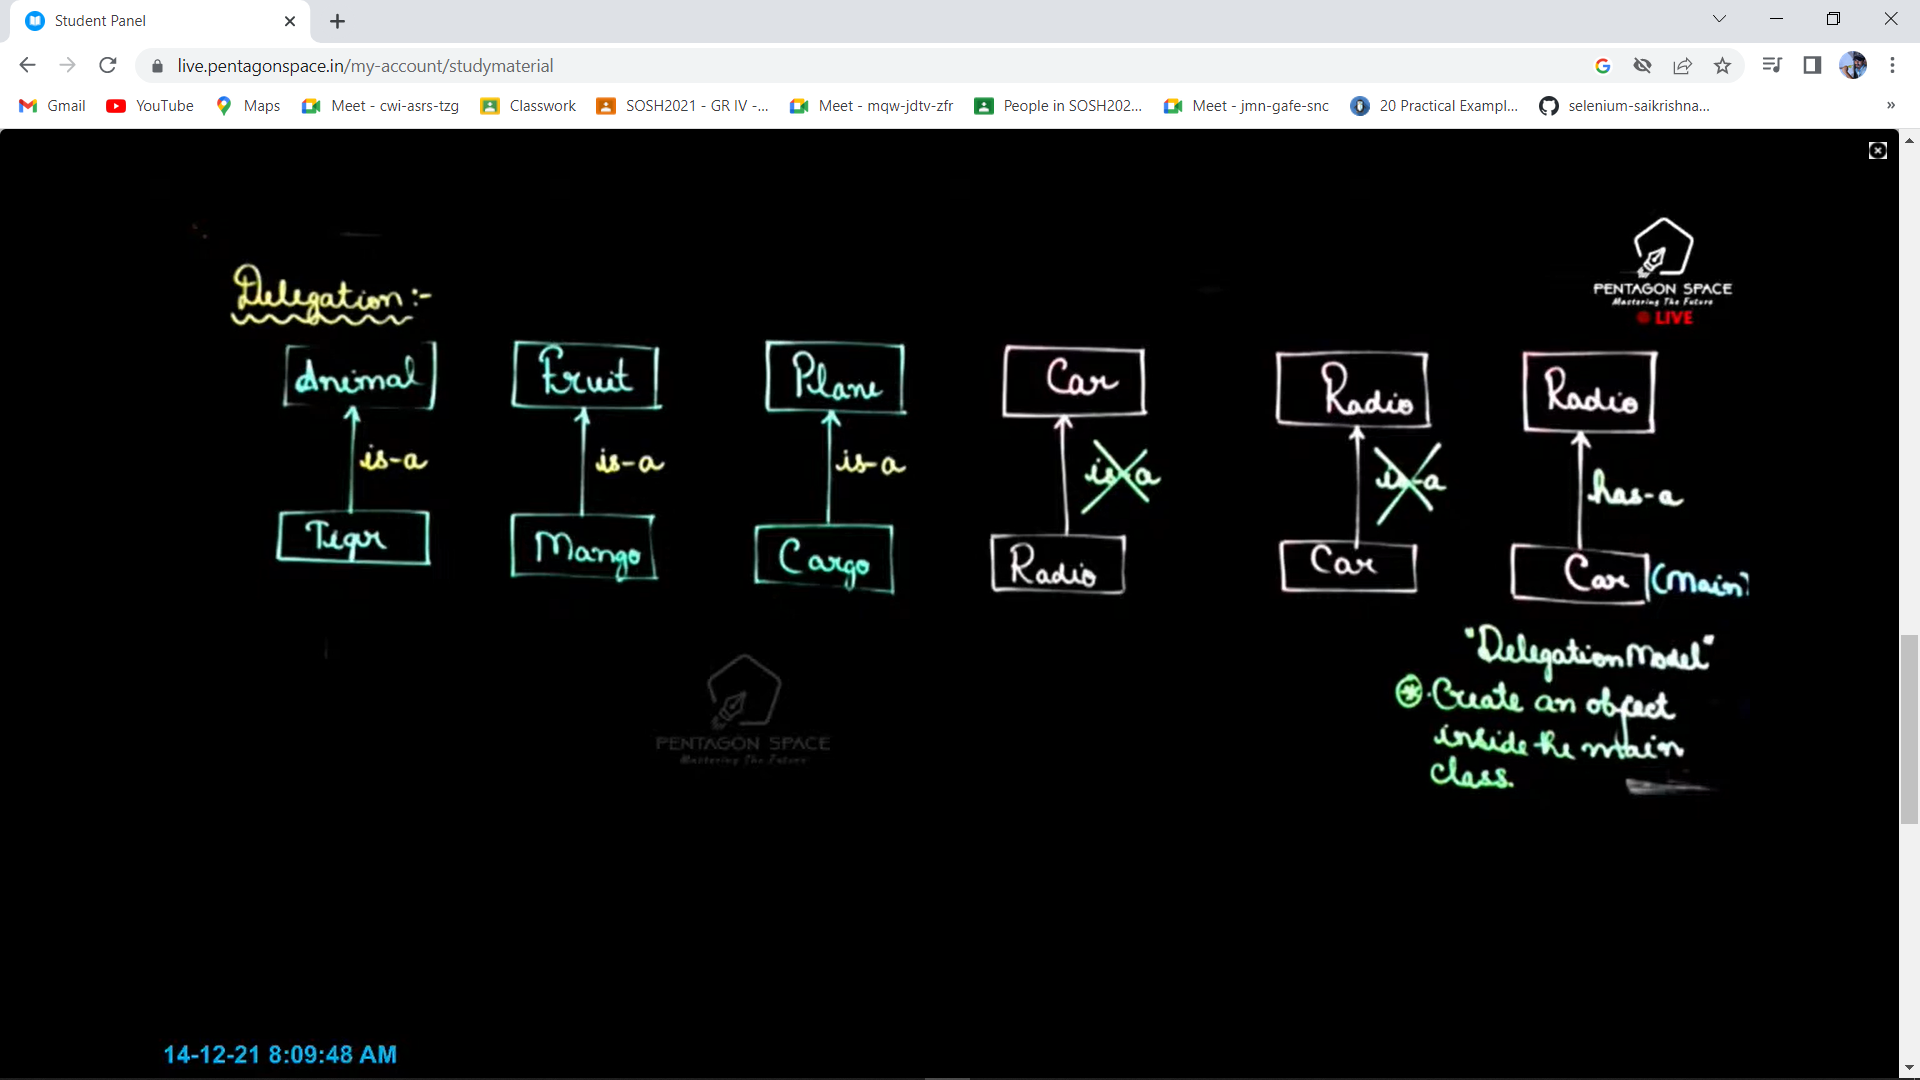 Student Panel
live.pentagonspace.in/my-account/studymaterial
Gmail YouTube Maps Meet - cwi-asrs-tzg Classwork SOSH2021 - GR IV -... Meet - mqw-jdtv-zfr People in SOSH202... Meet - jmn-gafe-snc 20 Practical Exampl... selenium-saikrishna... »
PENTAGON SPACE
Mastering The Future
LIVE
Delegation:-
Animal Fruit Plane Car Radio Radio
is-a is-a is-a is-a is-a has-a
Tiger Mango Cargo Radio Car Car (Main)
"Delegation Model"
Create an object
inside the main
class.
PENTAGON SPACE
Mastering The Future
14-12-21 8:09:48 AM